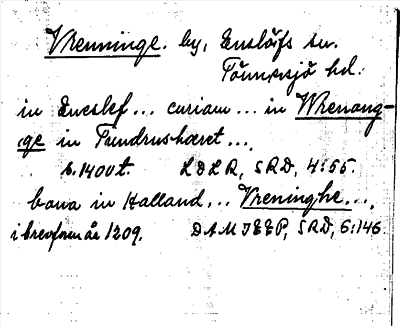 Vrenninge. by, Enslöfs sn.
Tönnersjö hd.
in Eneslef... curiam... in Wrenang-
ge in Tundrushæret...,
b. 1400 t. LDLR, SRD, 4:55.
bona in Halland... Vreninghe...,
i brevform år 1209. DAMIEEP, SRD, 6:146.